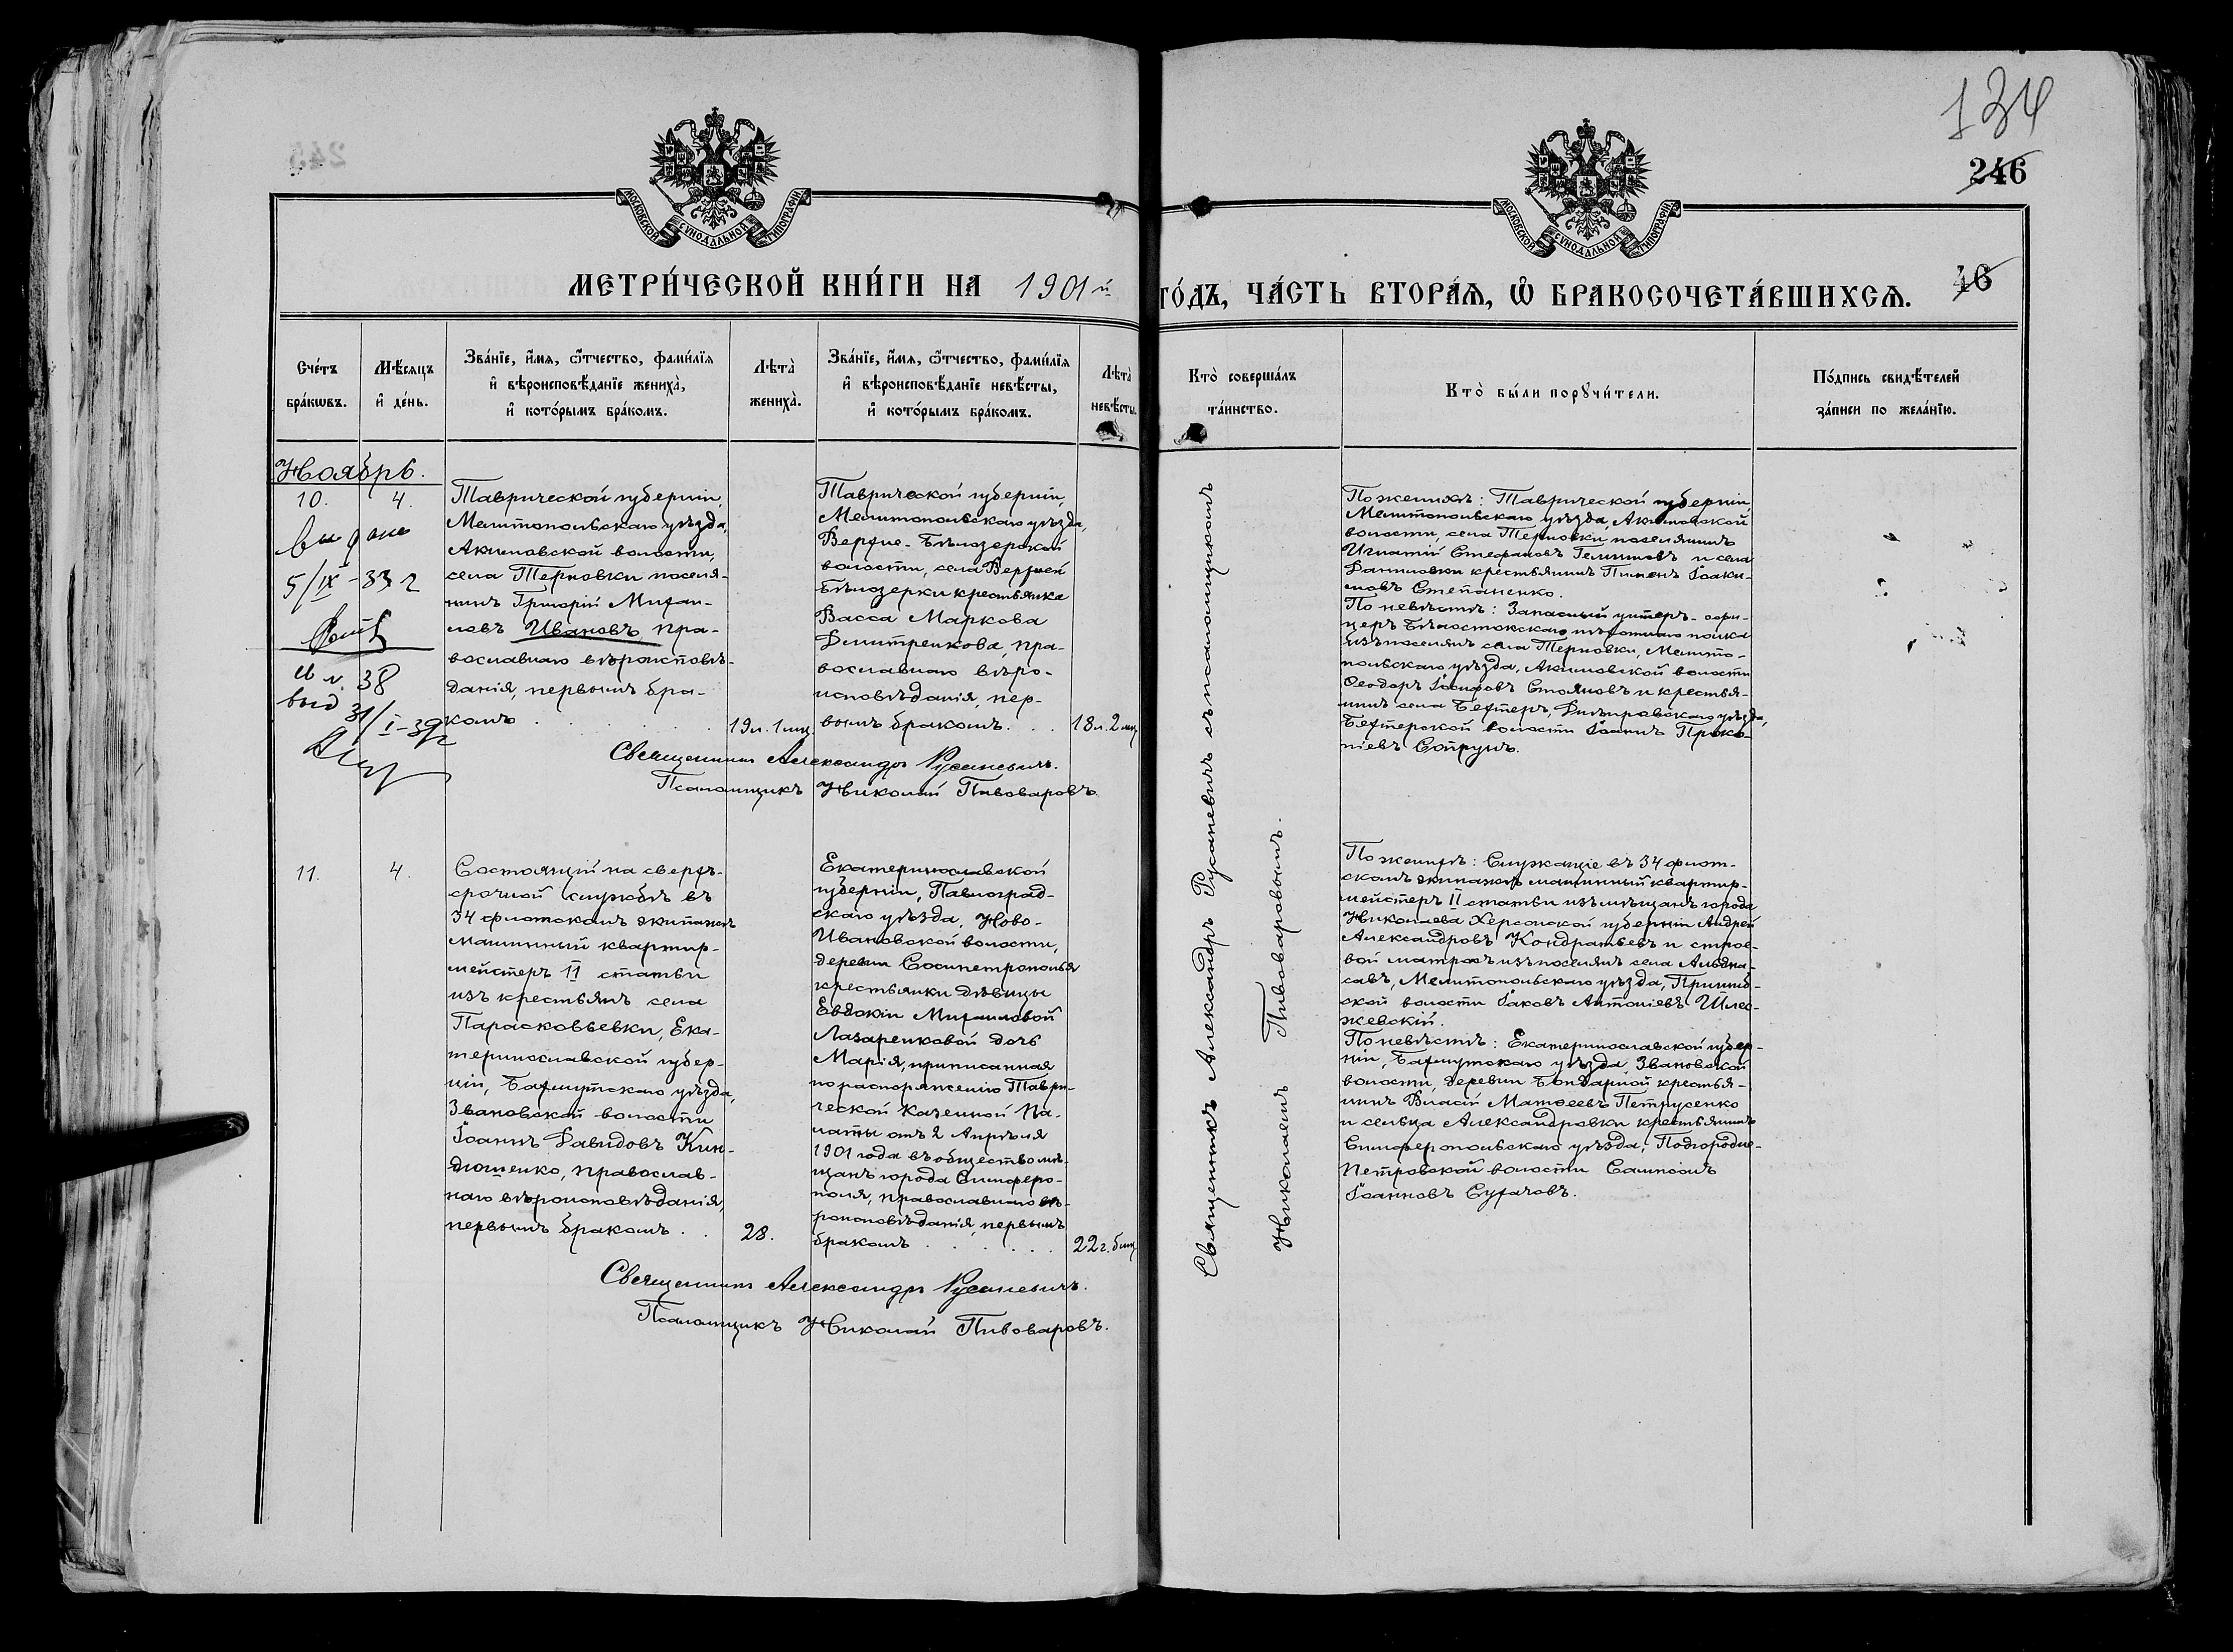 134
246
МОСКОВСКОЙ СУНОДАЛЬНОЙ ТИПОГРАФІИ
МОСКОВСКОЙ СУНОДАЛЬНОЙ ТИПОГРАФІИ
МЕТРИ́ЧЕСКОЙ КНИ́ГИ НА 1901й ГО́ДЪ, ЧА́СТЬ ВТОРА́Ѧ, Ѽ БРАКОСОЧЕТА́ВШИХСѦ.
46
Сче́тъ
бра́кѡвъ.
Мѣ́сяцъ
и҆ де́нь.
Зва́нїе, и҆́мя, ѻ҆́тчество, фами́лїя
и҆ вѣроисповѣ́данїе жениха̀,
и҆ кото́рымъ бра́комъ.
Лѣта̀
жениха̀.
Зва́нїе, и҆́мя, ѻ҆́тчество, фами́лїя
и҆ вѣроисповѣ́данїе невѣ́сты,
и҆ кото́рымъ бра́комъ.
Лѣта̀
невѣ́сты.
Кто̀ соверша́лъ
та́инство.
Кто̀ бы́ли порꙋчи́тели.
По́дпись свидѣ́телей
за́писи по жела́нїю.
Ноябрь.
10.
4.
выдано
5/IX-33 г
38
выд
31/I-39г
Таврической губерніи,
Мелитопольскаго уѣзда,
Акимовской волости,
села Терновки поселя-
нинъ Григорій Михаи-
ловъ Ивановъ, пра-
вославнаго вѣроисповѣ-
данія, первымъ бра-
комъ
19 л. 1 мц.
Таврической губерніи,
Мелитопольскаго уѣзда,
Верхне-Бѣлозерской
волости, села Верхней
Бѣлозерки крестьянка
Васса Маркова
Дмитренкова, пра-
вославнаго вѣро-
исповѣданія, пер-
вымъ бракомъ.
18 л. 2 мц
Священникъ Александръ Русаневичъ.
Псаломщикъ Николай Пивоваровъ
Священникъ Александръ Русаневичъ съ псаломщикомъ
Николаемъ Пивоваровымъ.
По женихѣ: Таврической губерніи
Мелитопольскаго уѣзда, Акимовской
волости, села Терновки поселянинъ
Игнатій Стефановъ и села
Даниловки крестьянинъ Пименъ Іоаки-
мовъ Степаненко.
По невѣстѣ: Запасный унтеръ-офи-
церъ Бѣлостокскаго пѣхотнаго полка
изъ поселянъ села Терновки, Мелито-
польскаго уѣзда, Акимовской волости
Ѳеодоръ Іосифовъ Стояновъ и крестья-
нинъ села Бехтеръ, Днѣпровскаго уѣзда,
Бехтерской волости Іоаннъ Проко-
піевъ Сопрунъ.
11.
4.
Состоящій на сверх-
срочной службѣ въ
34 флотскомъ экипажѣ
машинный квартир-
мейстеръ II статьи
изъ крестьянъ села
Парасковьевки, Ека-
теринославской губер-
ніи, Бахмутскаго уѣзда,
Звановской волости
Іоаннъ Давидовъ Кин-
дюшенко, православ-
наго вѣроисповѣданія,
первымъ бракомъ . .
28.
Екатеринославской
губерніи, Павлоград-
скаго уѣзда, Ново-
Ивановской волости,
деревни Сосипетрополья
крестьянки дѣвицы
Евдокіи Михаиловой
Лазаренковой дочь
Марія, приписанная
по распоряженію Таври-
ческой Казенной Па-
латы отъ 2 Апрѣля
1901 года въ общество мѣ-
щанъ города Симферо-
поля, православнаго вѣ-
роисповѣданія, первымъ
бракомъ
22 г. 6 мц
Священникъ Александръ Русаневичъ.
Псаломщикъ Николай Пивоваровъ.
По женихѣ: Служащіе въ 34 флот-
скомъ экипажѣ машинный квартир-
мейстеръ II статьи изъ мѣщанъ города
Николаева Херсонской губерніи Андрей
Александровъ Кондратьевъ и строе-
вой матросъ изъ поселянъ села
Мелитопольскаго уѣзда, Пришиб-
ской волости Іаковъ Антоніевъ
жевскій.
По невѣстѣ: Екатеринославской губер-
ніи, Бахмутскаго уѣзда, Звановской
волости, деревни Бондарной крестья-
нинъ Власій Матѳеевъ Петрусенко
и сельца Александровки крестьянинъ
Симферопольскаго уѣзда, Подгородне-
Петровской волости Сампсонъ
Іоанновъ Сухачовъ.